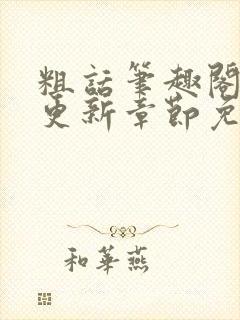 粗話筆趣閣
更新章節免
和華燕